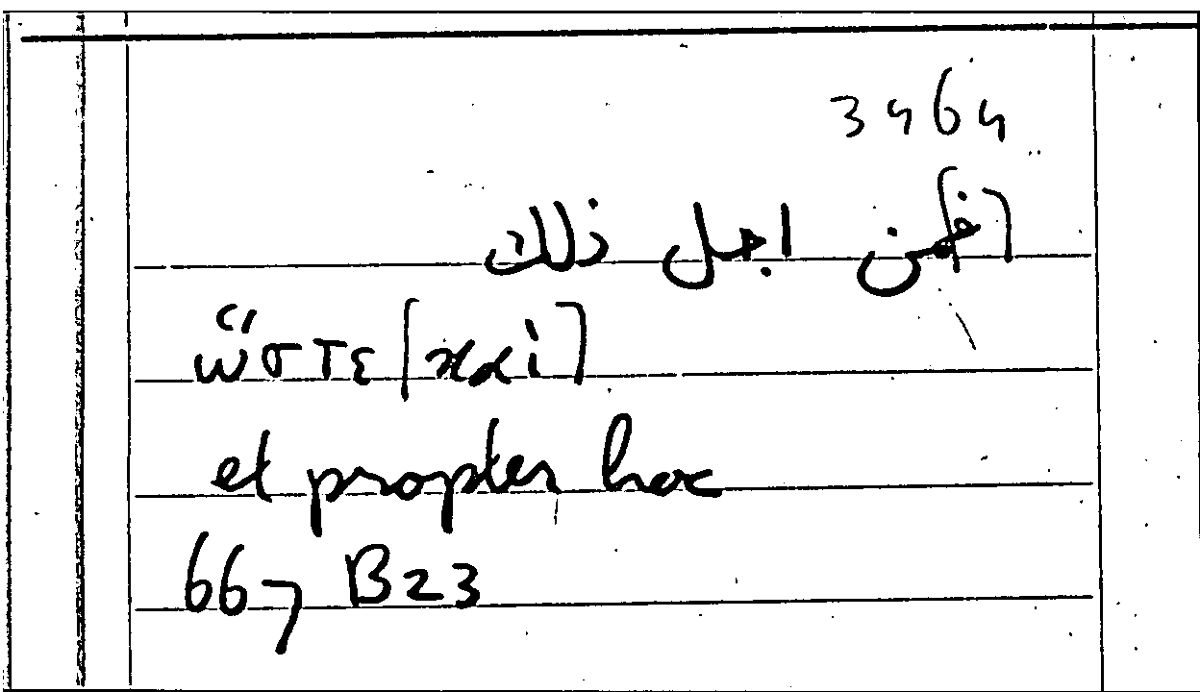 3464
[ف]من اجل ذلك
ὥστε [καὶ]
et propter hoc
667 B23